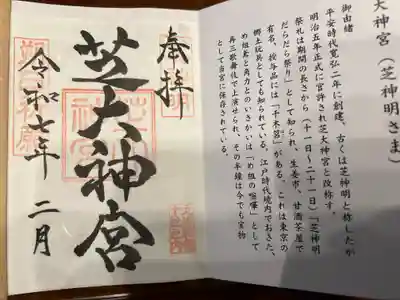 奉拝
芝大神宮
令和七年 二月
大神宮(芝神明さま)
御由緒
平安時代寛弘二年に創建、古くは芝神明と称したが
明治五年正式に官許され芝大神宮と改称す。
祭礼は期間の長さから(十一〜二十一日)「芝神明
だらだら祭り」として知られ、生姜市、甘酒茶屋で
有名、授与品には「千木筥」がある。これは東京の
郷土玩具としても知られている。江戸時代境内でおきた、
め組鳶と角力とのいさかいは「め組の喧嘩」として
再三歌舞伎で上演せられ、その半鐘は今でも宝物
として当宮に保存されている。